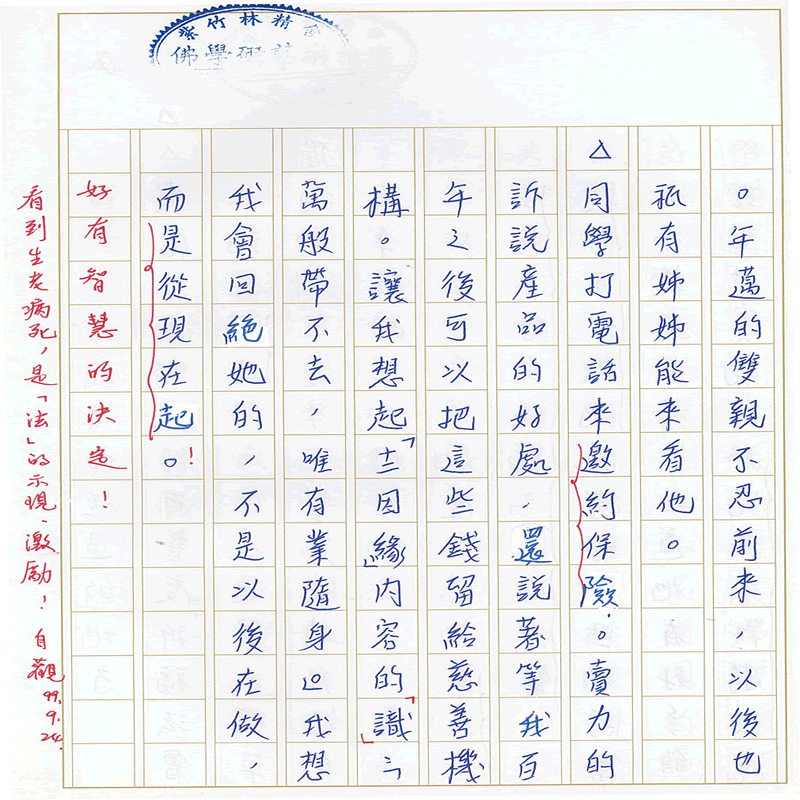 紫竹林精
佛學研
。年邁的雙親不忍前來，以後也
祇有姊姊能來看他。
△同學打電話來邀約保險。賣力的
訴說產品的好處，還說著等我百
年之後可以把這些錢留給慈善機
構。讓我想起「十二因緣」內容的「識」：「
萬般帶不去，唯有業隨身」。我想
我會回絕她的，不是以後在做，
而是從現在起。！
好有智慧的決定！
看到生老病死，是「法」的示現、激勵！自觀 99.9.24.